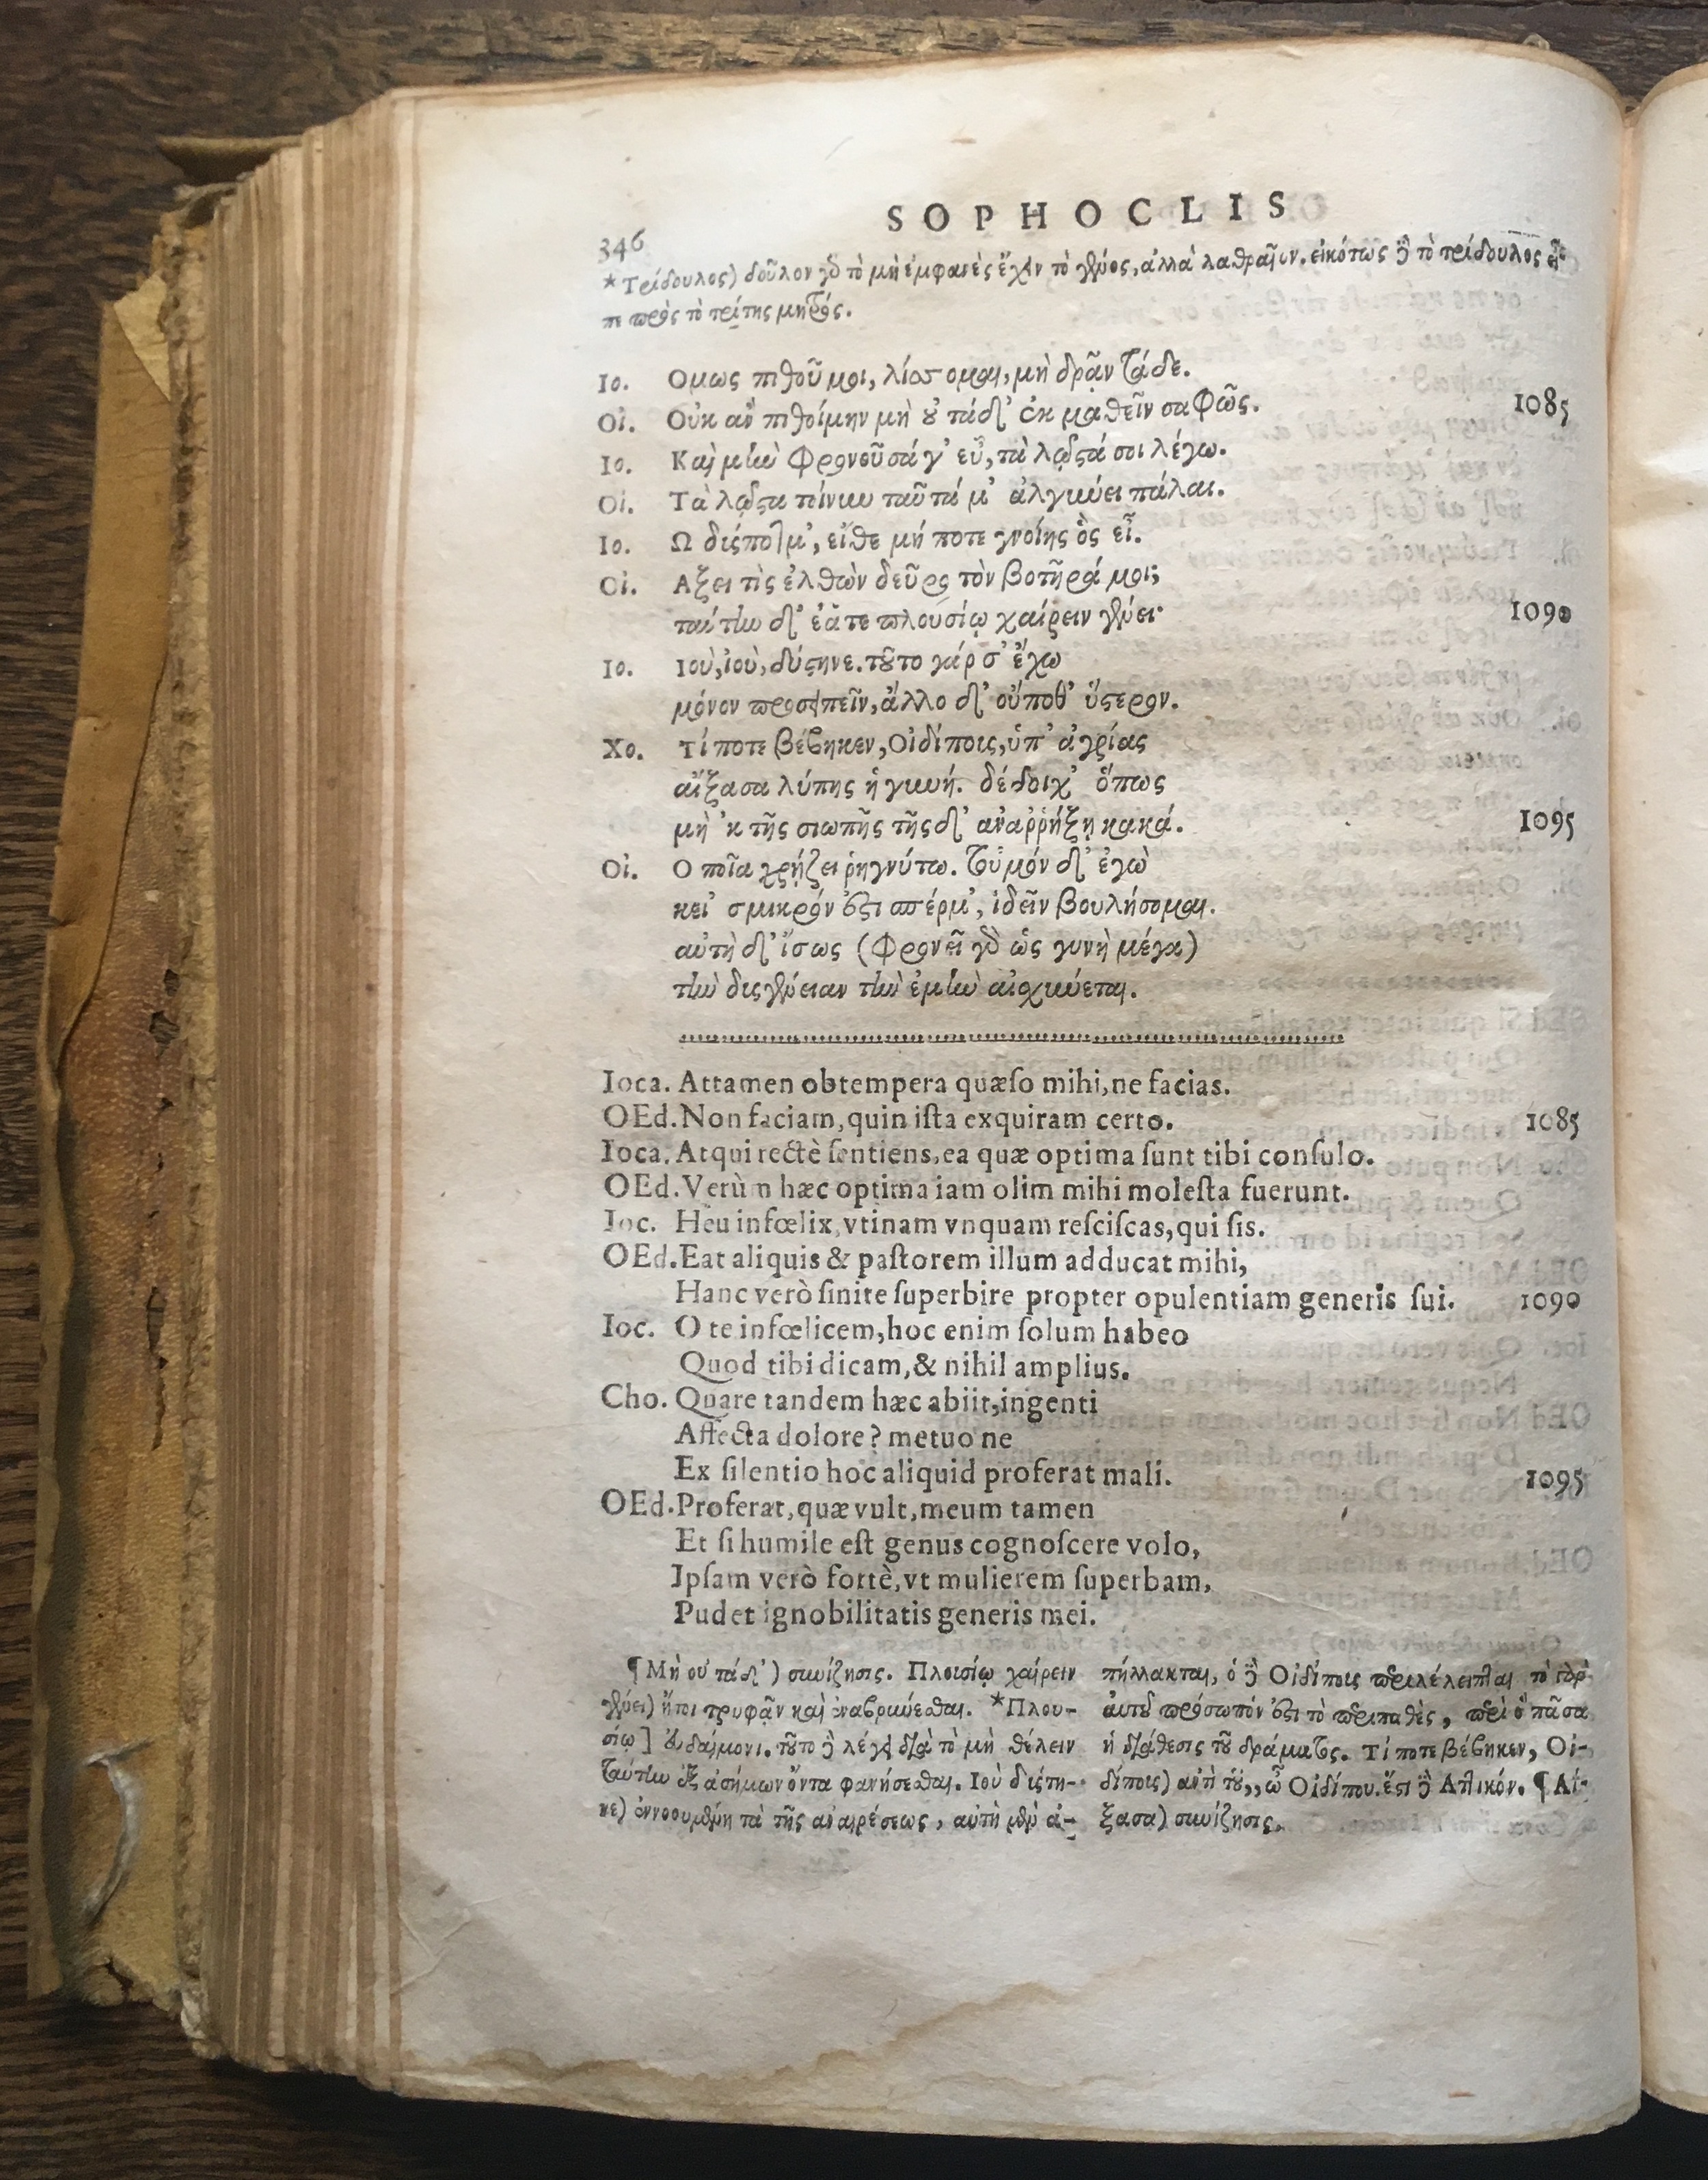 SOPHOCLIS
346
*Τρίδουλος) δοῦλον γδ τὸ μὴ ἐμφανὲς ἔχειν τὸ γένος, ἀλλὰ λαθραῖον. εἰκότως ἢ τὸ τρίδουλος
πρὸς τὸ τρίτης μητρός.
Ιο. Ομως πιθοῦ μοι, λίσσομαι, μὴ δρᾶν τάδε.
Οἰ. Οὐκ ἂν πιθοίμην μὴ οὐ τάδ' ἐκ μαθεῖν σαφῶς. 1085
Ιο. Καὶ μὴν φρονοῦσά γ' εὖ, τὰ λῷστά σοι λέγω.
Οἰ. Τὰ λῷστα τοίνυν ταῦτά μ' ἀλγύνει πάλαι.
Ιο. Ω δύσποτμ', εἴθε μή ποτε γνοίης ὃς εἶ.
Οἰ. Αξει τὶς ἐλθὼν δεῦρο τὸν βοτῆρά μοι;
ταύτην δ' ἐᾶτε πλουσίῳ χαίρειν γένει· 1090
Ιο. Ιοὺ, ἰοὺ, δύστηνε. τοῦτο γάρ σ' ἔχω
μόνον προσειπεῖν, ἄλλο δ' οὔποθ' ὕστερον.
Χο. Τί ποτε βέβηκεν, Οἰδίπους, ὑπ' ἀγρίας
αἴξασα λύπης ἡ γυνή. δέδοιχ' ὅπως
μὴ 'κ τῆς σιωπῆς τῆςδ' ἀναῤῥήξῃ κακά. 1095
Οἰ. Οποῖα χρῄζει ῥηγνύτω. τοὐμόν δ' ἐγὼ
κεἰ σμικρόν ἐστι σπέρμ', ἰδεῖν βουλήσομαι.
αὐτὴ δ' ἴσως (φρονεῖ γδ ὡς γυνὴ μέγα)
τὴν δυςγένειαν τὴν ἐμὴν αἰσχύνεται.
Ioca. Attamen obtempera quæſo mihi, ne facias.
OEd. Non faciam, quin iſta exquiram certo. 1085
Ioca. Atqui rectè ſentiens, ea quæ optima ſunt tibi conſulo.
OEd. Verùm hæc optima iam olim mihi moleſta fuerunt.
Ioc. Heu infœlix, vtinam vnquam reſciſcas, qui ſis.
OEd. Eat aliquis & paſtorem illum adducat mihi,
Hanc verò ſinite ſuperbire propter opulentiam generis ſui. 1090
Ioc. O te infœlicem, hoc enim ſolum habeo
Quod tibi dicam, & nihil amplius.
Cho. Quare tandem hæc abiit, ingenti
Affecta dolore? metuo ne
Ex ſilentio hoc aliquid proferat mali. 1095
OEd. Proferat, quæ vult, meum tamen
Et ſi humile eſt genus cognoſcere volo,
Ipſam verò fortè, vt mulierem ſuperbam,
Pudet ignobilitatis generis mei.
¶ Μὴ οὐ τάδ') συνίζησις. Πλουσίῳ χαίρειν
γένει) ἤτοι τρυφᾶν καὶ ἐναβρύνεσθαι. *Πλου-
σίῳ] εὐδαίμονι. τοῦτο ἢ λέγει διὰ τὸ μὴ θέλειν
ταύτην ἐξ ἀσήμων ὄντα φανήσεσθαι. Ιοὺ δύςτη-
νε) ἐννοουμένη τὰ τῆς ἀναιρέσεως, αὐτὴ μὲν ἀ-
πήλλακται, ὁ ἢ Οἰδίπους περιλέλειπται τὸ
αὐτοῦ πρόσωπόν ἐστι τὸ περιπαθὲς, περὶ ὃ πᾶσα
ἡ διάθεσις τοῦ δράματος. Τί ποτε βέβηκεν, Οἰ-
δίπους) ἀντὶ τοῦ,, ὦ Οἰδίπου. ἔστι ἢ Ἀττικόν. ¶ Αἴ-
ξασα) συνίζησις.